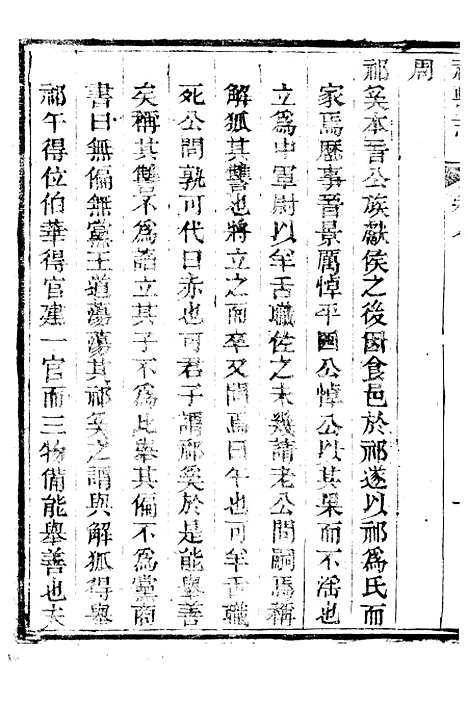 周
祁奚本晉公族獻侯之後因食邑於祁遂以祁爲氏而
家焉歷事晉景厲悼平四公悼公以其果而不淫也
立爲中軍尉以羊舌職佐之未幾請老公問嗣焉稱
解狐其讐也將立之而卒又問焉曰午也可羊舌職
死公問孰可代曰赤也可君子謂祁奚於是能舉善
矣稱其讐不爲諂立其子不爲比舉其偏不爲黨商
書曰無偏無黨王道蕩蕩其祁奚之謂與解狐得舉
祁午得位伯華得官建一官而三物備能舉善也夫